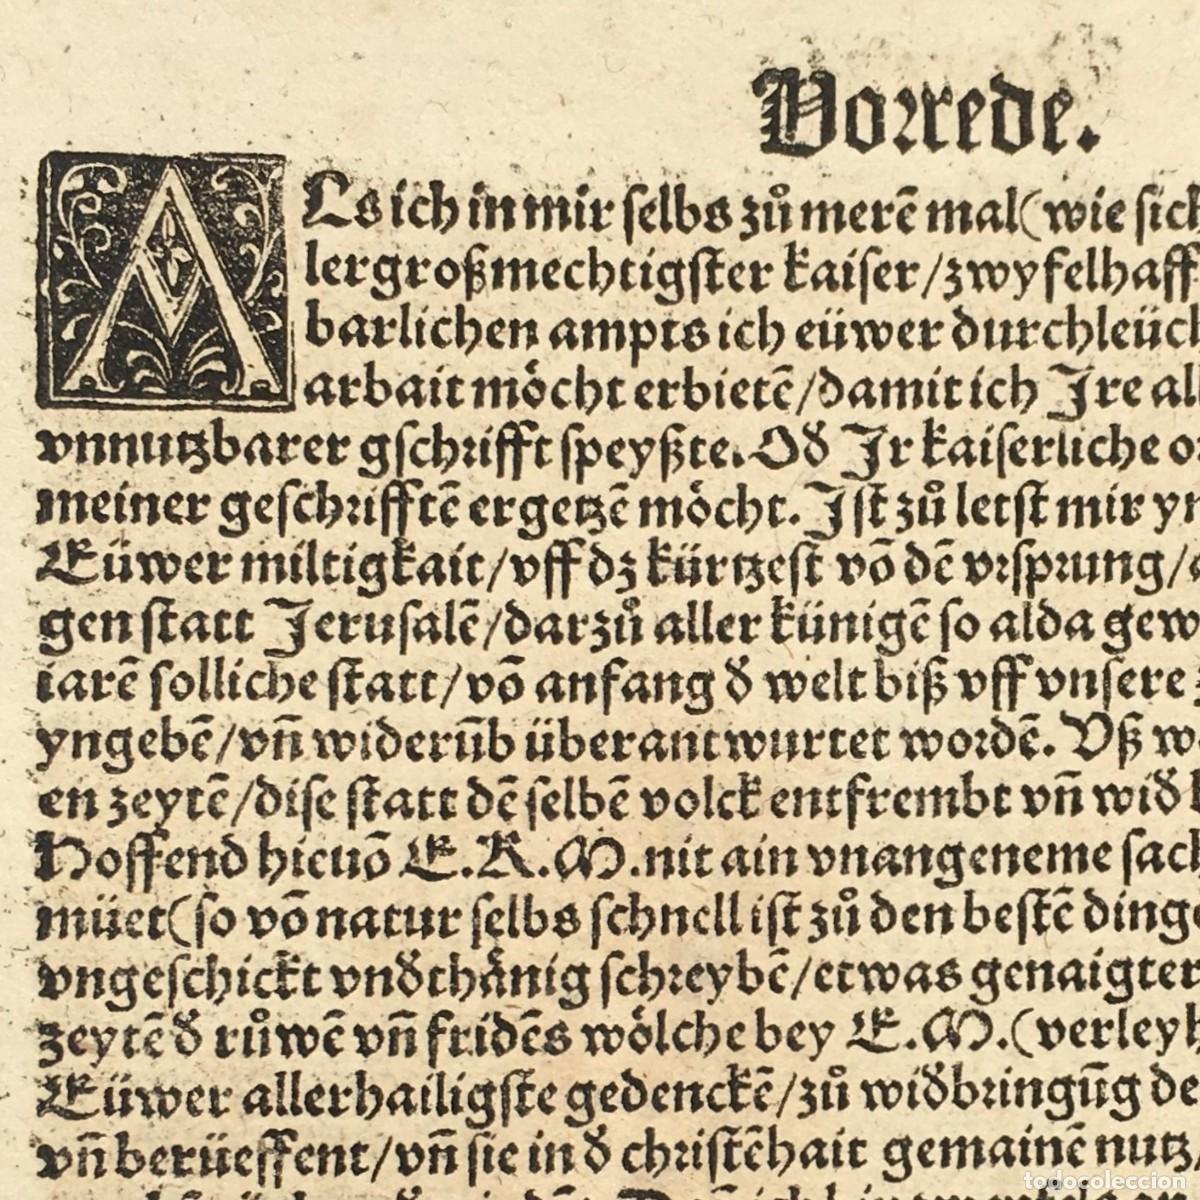 Vorrede.
ALs ich in mir selbs zů merē mal (wie sich
lergroßmechtigster kaiser/zwyfelhaff
barlichen ampts ich eüwer durchleüch
arbait möcht erbietē/damit ich Ire all
vnnutzbarer gschrifft speyßte. Od̄ Ir kaiserliche or
meiner geschrifftē ergetzē möcht. Ist zů letst mir yn
Eüwer miltigkait/vff dz kürtzest vō dē vrsprung/
gen statt Jerusalē/darzů aller künigē so alda gew
iarē solliche statt/vō anfang d̄ welt biß vff vnsere z
yngebē/vñ widerūb überantwurtet wordē. Vß w
en zeytē/dise statt dē selbē volck entfrembt vñ wid̄
Hoffend hieuō E.K.M. nit ain vnangeneme sach
müet (so vō natur selbs schnell ist zů den bestē ding
vngeschickt vnd̄thänig schreybē/etwas genaigter
zeytē d̄ růwē vñ fridēs wölche bey E.M. (verleyh
Eüwer allerhailigste gedenckē/zů wid̄bringūg de
vñ berüeffent/vñ sie in d̄ christēhait gemainē nutz/
todocoleccion